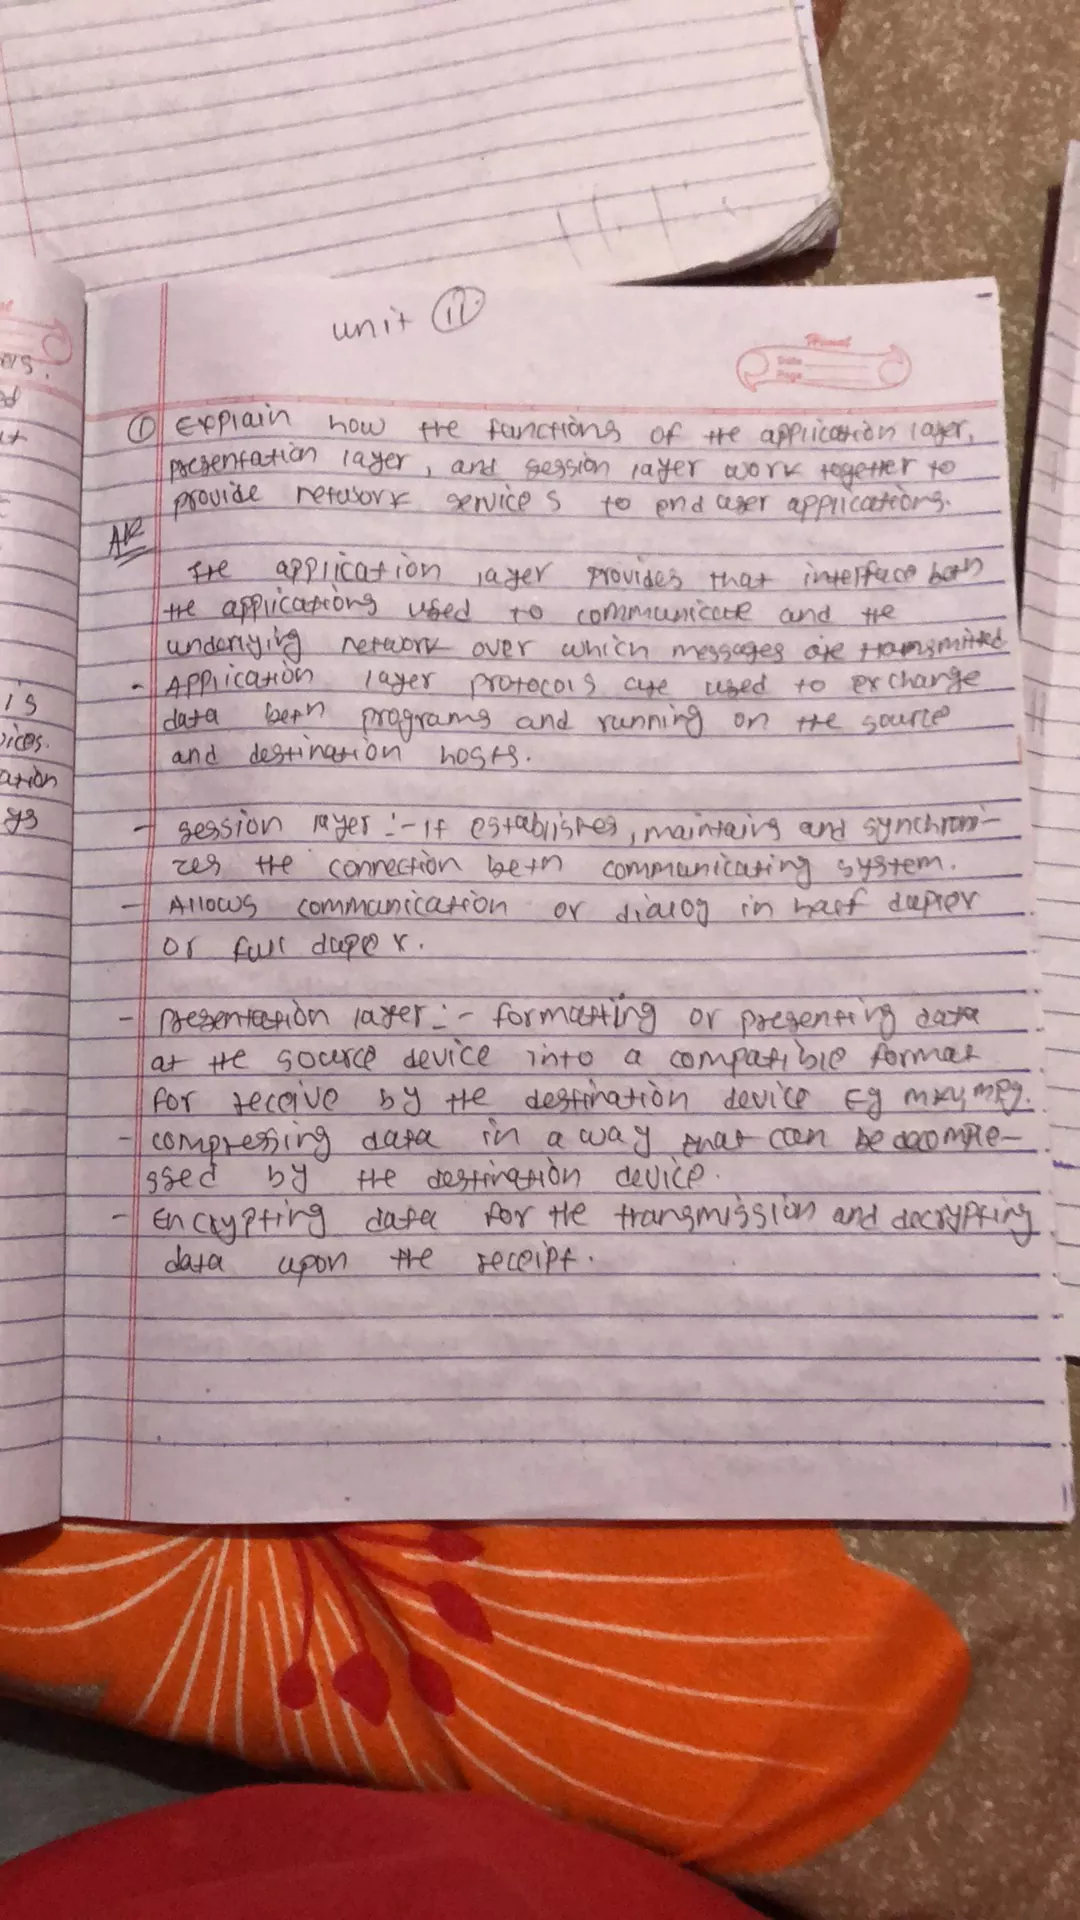 unit 12
① Explain how the functions of the application layer,
presentation layer, and session layer work together to
provide network services to end user applications.
The application layer provides that interface betn
the applications used to communicate and the
underlying network over which messages are transmitted
- Application layer protocols are used to exchange
data betn programs and running on the source
and destination hosts.
- session layer :- It establishes, maintains and synchroni-
zes the connection betn communicating system.
- Allows communication or dialog in half duplex
or full duplex.
- presentation layer :- formatting or presenting data
at the source device into a compatible format
for receive by the destination device Eg mkv, mpg.
- compressing data in a way that can be decompre-
ssed by the destination device.
- Encrypting data for the transmission and decrypting
data upon the receipt.
Date
Page
ers.
ed
ut
is
vices.
ation
ys